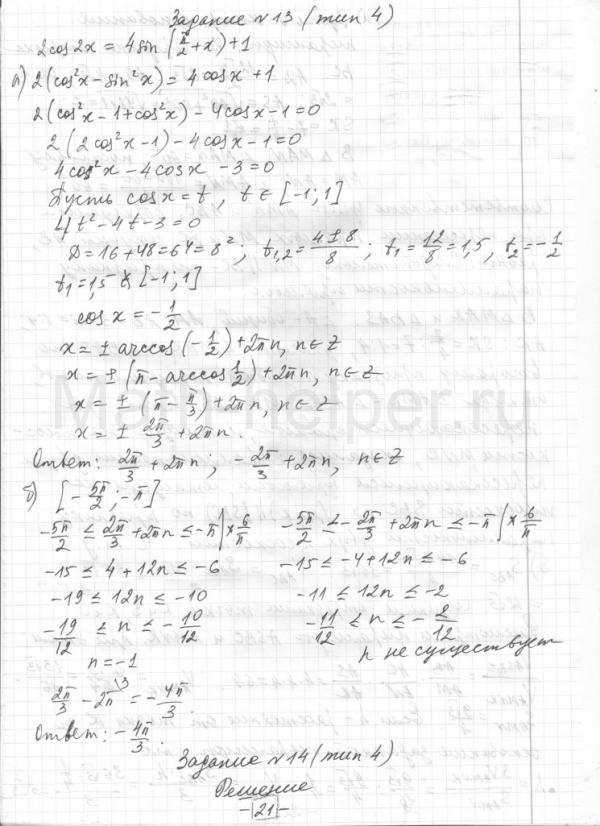 Задание №13 (тип 4)
2cos2x = 4sin(π/2+x)+1
а) 2(cos²x-sin²x) = 4cosx+1
2(cos²x-1+cos²x)-4cosx-1=0
2(2cos²x-1)-4cosx-1=0
4cos²x-4cosx-3=0
Пусть cosx=t, t∈[-1;1]
4t²-4t-3=0
D=16+48=64=8²; t₁,₂=(4±8)/8; t₁=12/8=1,5, t₂=-1/2
t₁=1,5∉[-1;1]
cosx=-1/2
x=±arccos(-1/2)+2πn, n∈Z
x=±(π-arccos1/2)+2πn, n∈Z
x=±(π-π/3)+2πn, n∈Z
x=±2π/3+2πn.
Ответ: 2π/3+2πn; -2π/3+2πn, n∈Z
б) [-5π/2;-π]
-5π/2≤2π/3+2πn≤-π|×6/π -5π/2≤-2π/3+2πn≤-π|×6/π
-15≤4+12n≤-6 -15≤-4+12n≤-6
-19≤12n≤-10 -11≤12n≤-2
-19/12≤n≤-10/12 -11/12≤n≤-2/12
n=-1 n не существует
2π/3-2π\3=-4π/3.
Ответ: -4π/3.
Задание №14 (тип 4)
Решение
-|21|-
Mathhelper.ru